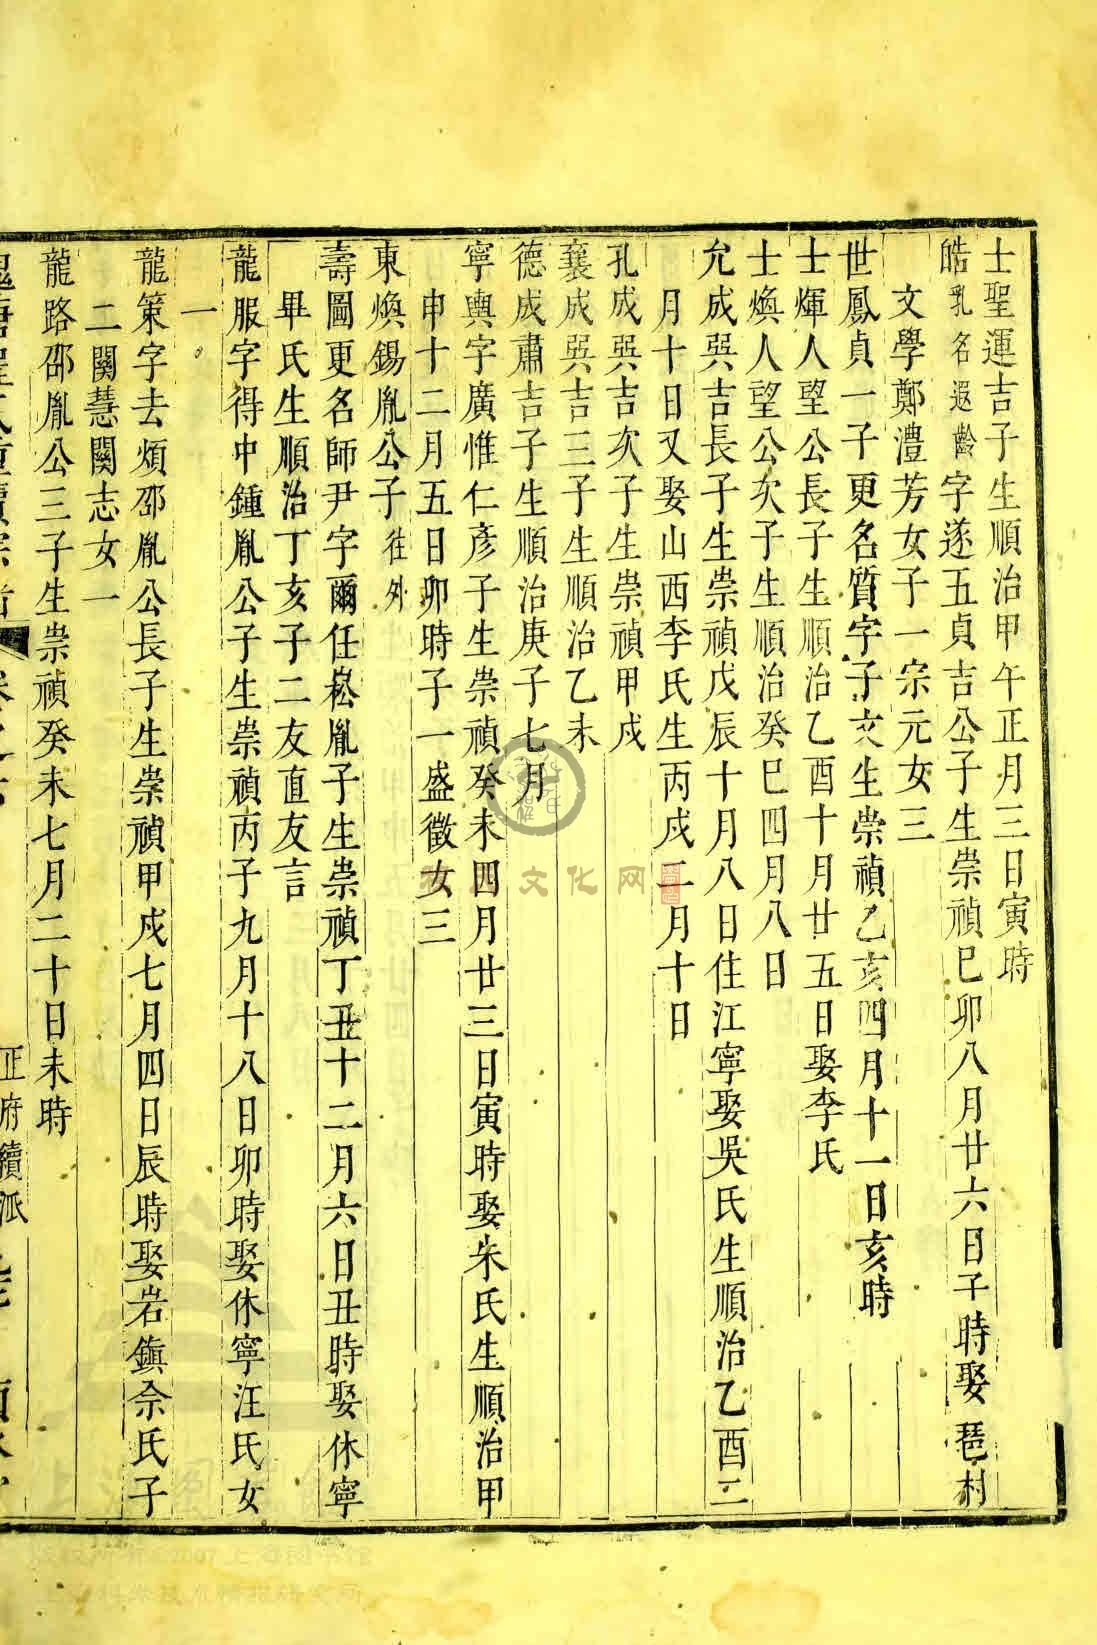 士聖運吉子生順治甲午正月三日寅時
皓乳名遐齡字遂五貞吉公子生崇禎己卯八月廿六日子時娶琶村
文學鄭澧芳女子一宗元女三
世鳳貞一子更名質字子文生崇禎乙亥四月十一日亥時
士煇人望公長子生順治乙酉十月廿五日娶李氏
士煥人望公次子生順治癸巳四月八日
允成巺吉長子生崇禎戊辰十月八日住江寧娶吳氏生順治乙酉二
月十日又娶山西李氏生丙戌二月十日
孔成巺吉次子生崇禎甲戌
襄成巺吉三子生順治乙未
德成肅吉子生順治庚子七月
寧輿字廣惟仁彥子生崇禎癸未四月廿三日寅時娶朱氏生順治甲
申十二月五日卯時子一盛徵女三
東煥錫胤公子徃外
壽圖更名師尹字爾任崧胤子生崇禎丁丑十二月六日丑時娶休寧
畢氏生順治丁亥子二友直友言
龍服字得中鍾胤公子生崇禎丙子九月十八日卯時娶休寧汪氏女
一
龍策字去煩邵胤公長子生崇禎甲戌七月四日辰時娶岩鎮佘氏子
二關慧關志女一
龍路邵胤公三子生崇禎癸未七月二十日未時
正府續派